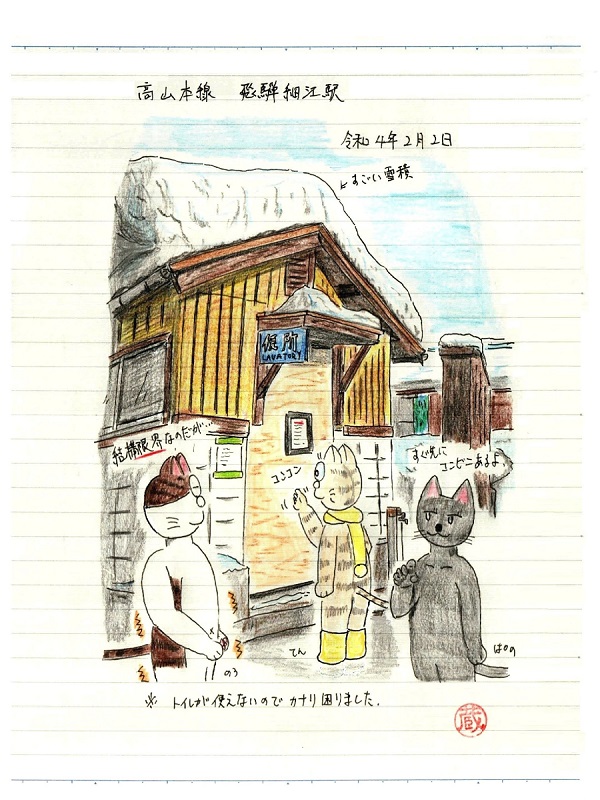 高山本線 飛騨細江駅
令和4年2月2日
すごい雪積
便所
LAVATORY
結構限界なのだが…
コンコン
すぐ先に
コンビニあるよ
てん
のう
ぱのの
※ トイレが使えないのでカナリ困りました.
蔵